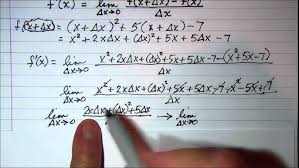 f(x) = lim Δx→0 Δx
f(x+Δx) = (x+Δx)² + 5(x+Δx) - 7
= x² + 2xΔx + (Δx)² + 5x + 5Δx - 7
f'(x) = lim Δx→0 x² + 2xΔx + (Δx)² + 5x + 5Δx - 7 - (x² + 5x - 7) / Δx
lim Δx→0 x² + 2xΔx + (Δx)² + 5x + 5Δx - 7 - x² - 5x + 7 / Δx
lim Δx→0 2xΔx + (Δx)² + 5Δx → lim Δx→0